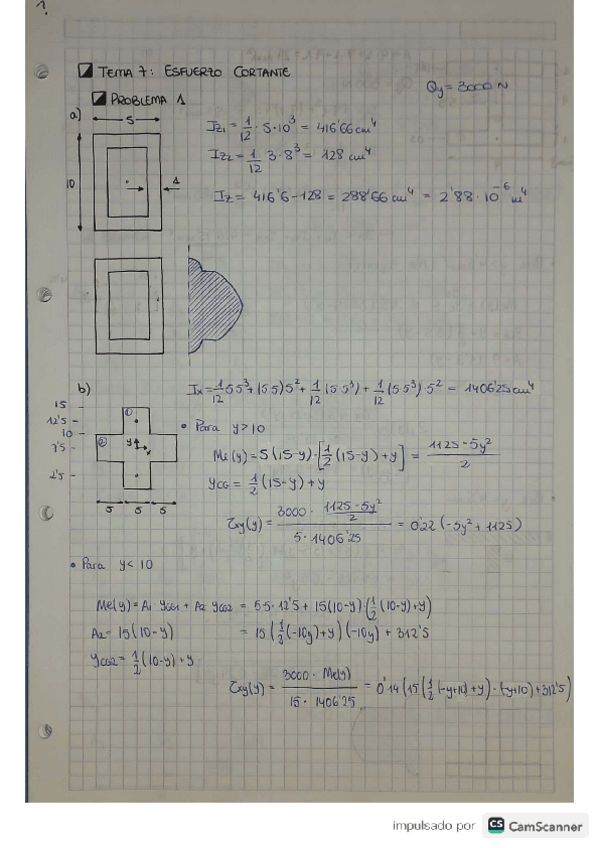 1.
TEMA 7: ESFUERZO CORTANTE
Qy = 3000 N
PROBLEMA 1
a)
5
10
1
Iz1 = 1/12 · 5·10³ = 416'66 cm⁴
Iz2 = 1/12 3·8³ = 128 cm⁴
Iz = 416'6 - 128 = 288'66 cm⁴ = 2'88·10⁻⁶ m⁴
b)
Ix = 1/12 5·5³ + (5·5)5² + 1/12 (5·5³) + 1/12 (5·5³)·5² = 1406'25 cm⁴
15
12'5
10
7'5
2'5
①
②
y
x
5 5 5
• Para y > 10
Me(y) = 5(15-y)·[1/2 (15-y) + y] = (1125 - 5y²)/2
YCG = 1/2 (15-y) + y
τxy(y) = (3000 · (1125 - 5y²)/2)/(5·1406'25) = 0'22 (-5y² + 1125)
• Para y < 10
Me(y) = A1 YCG1 + A2 YCG2 = 5·5·12'5 + 15(10-y)·(1/2 (10-y) + y)
A2 = 15(10-y) = 15 (1/2 (-10y) + y) (-10y) + 312'5
YCG2 = 1/2 (10-y) + y
τxy(y) = (3000 · Me(y))/(15 · 1406'25) = 0'14 (15 (1/2 (-y+10) + y) · (-y+10) + 312'5)
impulsado por CS CamScanner